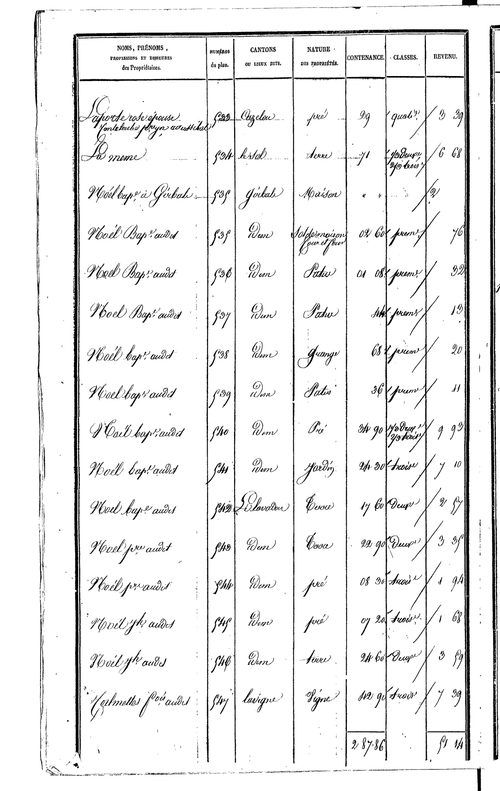 NOMS, PRÉNOMS, PROFESSIONS ET DEMEURES des Propriétaires. NUMÉROS du plan. CANTONS OU LIEUX DITS. NATURE DES PROPRIÉTÉS. CONTENANCE. CLASSES. REVENU.
Laporte rose épouse 533 pré 29 quatr. 3 39
Le meme 534 terre 71 6 68
Noël bap.te à Goibals 535 Goibals Maison " "
Noël Bap.te audit 535 Idem Sol de maison 02 60 prem. 76
Noel Bap.te audit 536 Idem Patu 01 08 prem. 32
Noel Bap.te audit 537 Idem Patu 44 prem. 13
Noël bap.te audit 538 Idem grange 68 prem 20
Noel bap.te audit 539 Idem Patus 36 prem 11
Noël bap.te audit 540 Idem Pré 34 90 9 93
Noël bap.te audit 541 Idem jardin 24 30 trois 7 10
Noel bap.te audit 542 17 60 Deux 2 57
Noel audit 543 Idem 22 90 Deux 3 35
Noël audit 544 Idem pré 08 30 trois 1 94
Noël audit 545 Idem pré 07 20 trois 1 68
Noël audit 546 Idem terre 24 60 Deux 3 59
audit 547 lavigne Vigne 42 90 trois 7 39
2 87 86 51 14